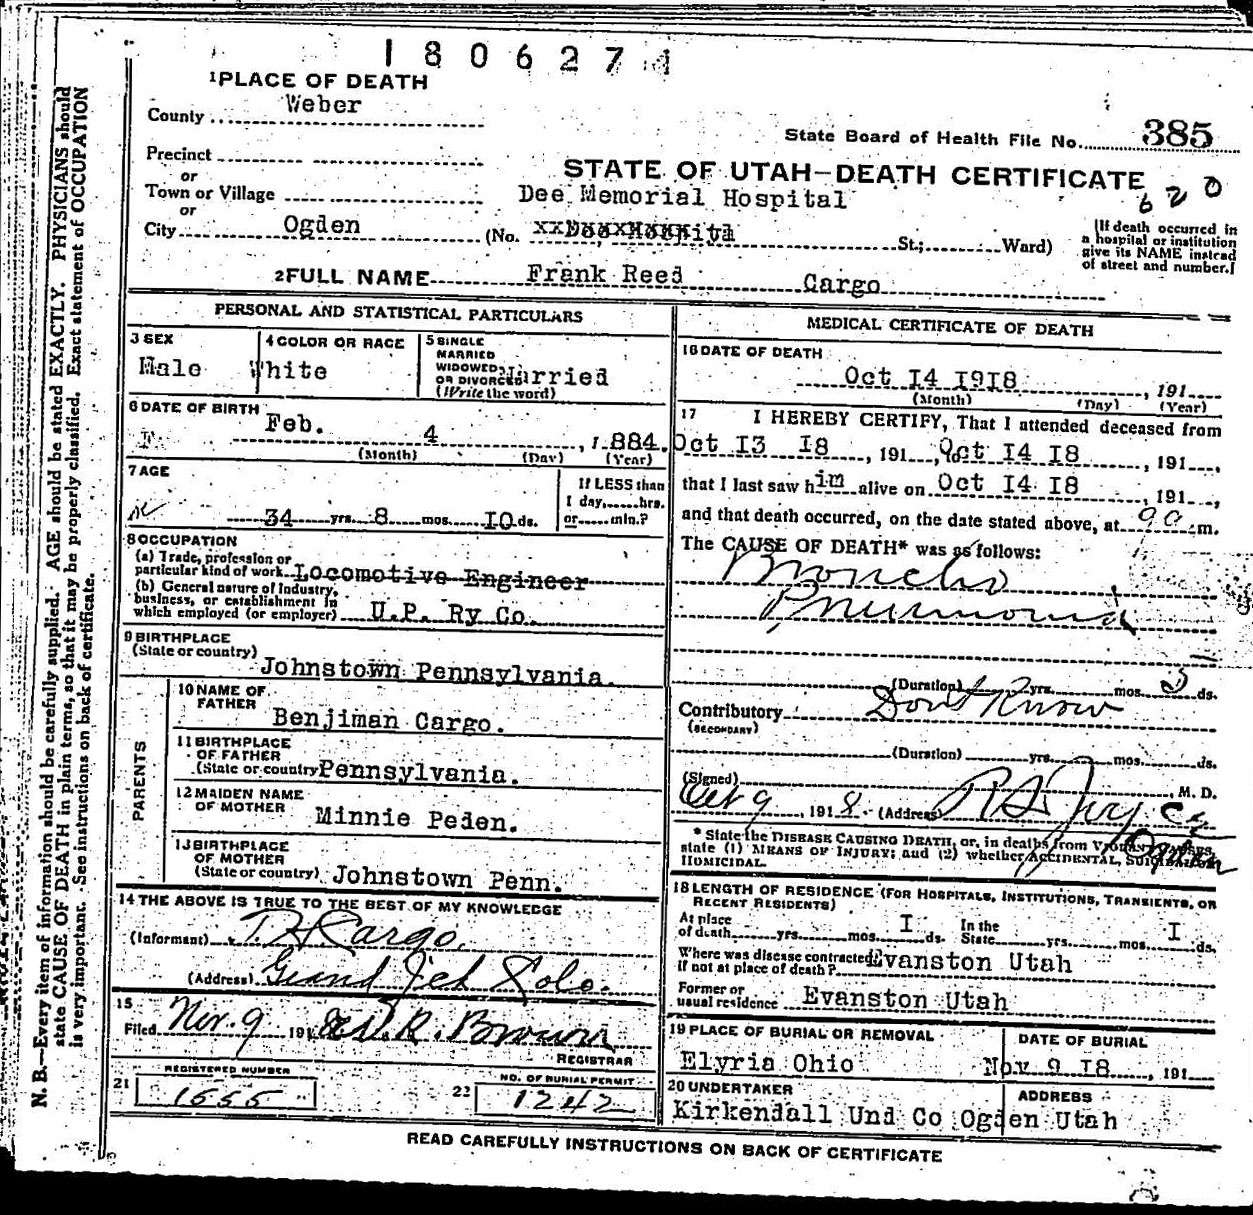 1806274
1 PLACE OF DEATH
County Weber
State Board of Health File No. 385
Precinct
or
Town or Village
or
City Ogden
STATE OF UTAH—DEATH CERTIFICATE
620
Dee Memorial Hospital
(No. St.; Ward)
[If death occurred in
a hospital or institution
give its NAME instead
of street and number.]
2 FULL NAME Frank Reed Cargo
PERSONAL AND STATISTICAL PARTICULARS
3 SEX
Male
4 COLOR OR RACE
White
5 SINGLE
MARRIED
WIDOWED
OR DIVORCED Married
(Write the word)
6 DATE OF BIRTH
Feb. 4, 1884.
(Month) (Day) (Year)
7 AGE
34 yrs. 8 mos. 10 ds.
If LESS than
1 day, hrs.
or min.?
8 OCCUPATION
(a) Trade, profession or
particular kind of work Locomotive Engineer
(b) General nature of Industry,
business, or establishment in
which employed (or employer) U.P. Ry Co.
9 BIRTHPLACE
(State or country)
Johnstown Pennsylvania.
PARENTS
10 NAME OF
FATHER
Benjiman Cargo.
11 BIRTHPLACE
OF FATHER
(State or country Pennsylvania.
12 MAIDEN NAME
OF MOTHER
Minnie Peden.
13 BIRTHPLACE
OF MOTHER
(State or country) Johnstown Penn.
14 THE ABOVE IS TRUE TO THE BEST OF MY KNOWLEDGE
(Informant) Cargo.
(Address) Grand Jct Colo.
15
Filed Nov. 9 191 R. Brown
REGISTRAR
REGISTERED NUMBER
21 1555
NO. OF BURIAL PERMIT
22 1242
MEDICAL CERTIFICATE OF DEATH
16 DATE OF DEATH
Oct I4 I9I8, 191
(Month) (Day) (Year)
17 I HEREBY CERTIFY, That I attended deceased from
Oct I3 I8, 191, to Oct I4 I8, 191,
that I last saw him alive on Oct I4 I8, 191,
and that death occurred, on the date stated above, at 9 a. m.
The CAUSE OF DEATH* was as follows:
Broncho
Pneumonia
(Duration) yrs. mos. 5 ds.
Contributory Don't Know
(SECONDARY)
(Duration) yrs. mos. ds.
(Signed) M. D.
Oct 9, 1918. (Address)
Ogden
* State the DISEASE CAUSING DEATH, or, in deaths from VIOLENT CAUSES,
state (1) MEANS OF INJURY; and (2) whether ACCIDENTAL, SUICIDAL OR
HOMICIDAL.
18 LENGTH OF RESIDENCE (FOR HOSPITALS, INSTITUTIONS, TRANSIENTS, OR
RECENT RESIDENTS)
At place
of death yrs. mos. I ds. In the
State yrs. mos. I ds.
Where was disease contracted
if not at place of death? Evanston Utah
Former or
usual residence Evanston Utah
19 PLACE OF BURIAL OR REMOVAL
Elyria Ohio
DATE OF BURIAL
Nov 9 I8, 191
20 UNDERTAKER
Kirkendall Und Co
ADDRESS
Ogden Utah
READ CAREFULLY INSTRUCTIONS ON BACK OF CERTIFICATE
N. B.—Every item of information should be carefully supplied. AGE should be stated EXACTLY. PHYSICIANS should
state CAUSE OF DEATH in plain terms, so that it may be properly classified. Exact statement of OCCUPATION
is very important. See instructions on back of certificate.